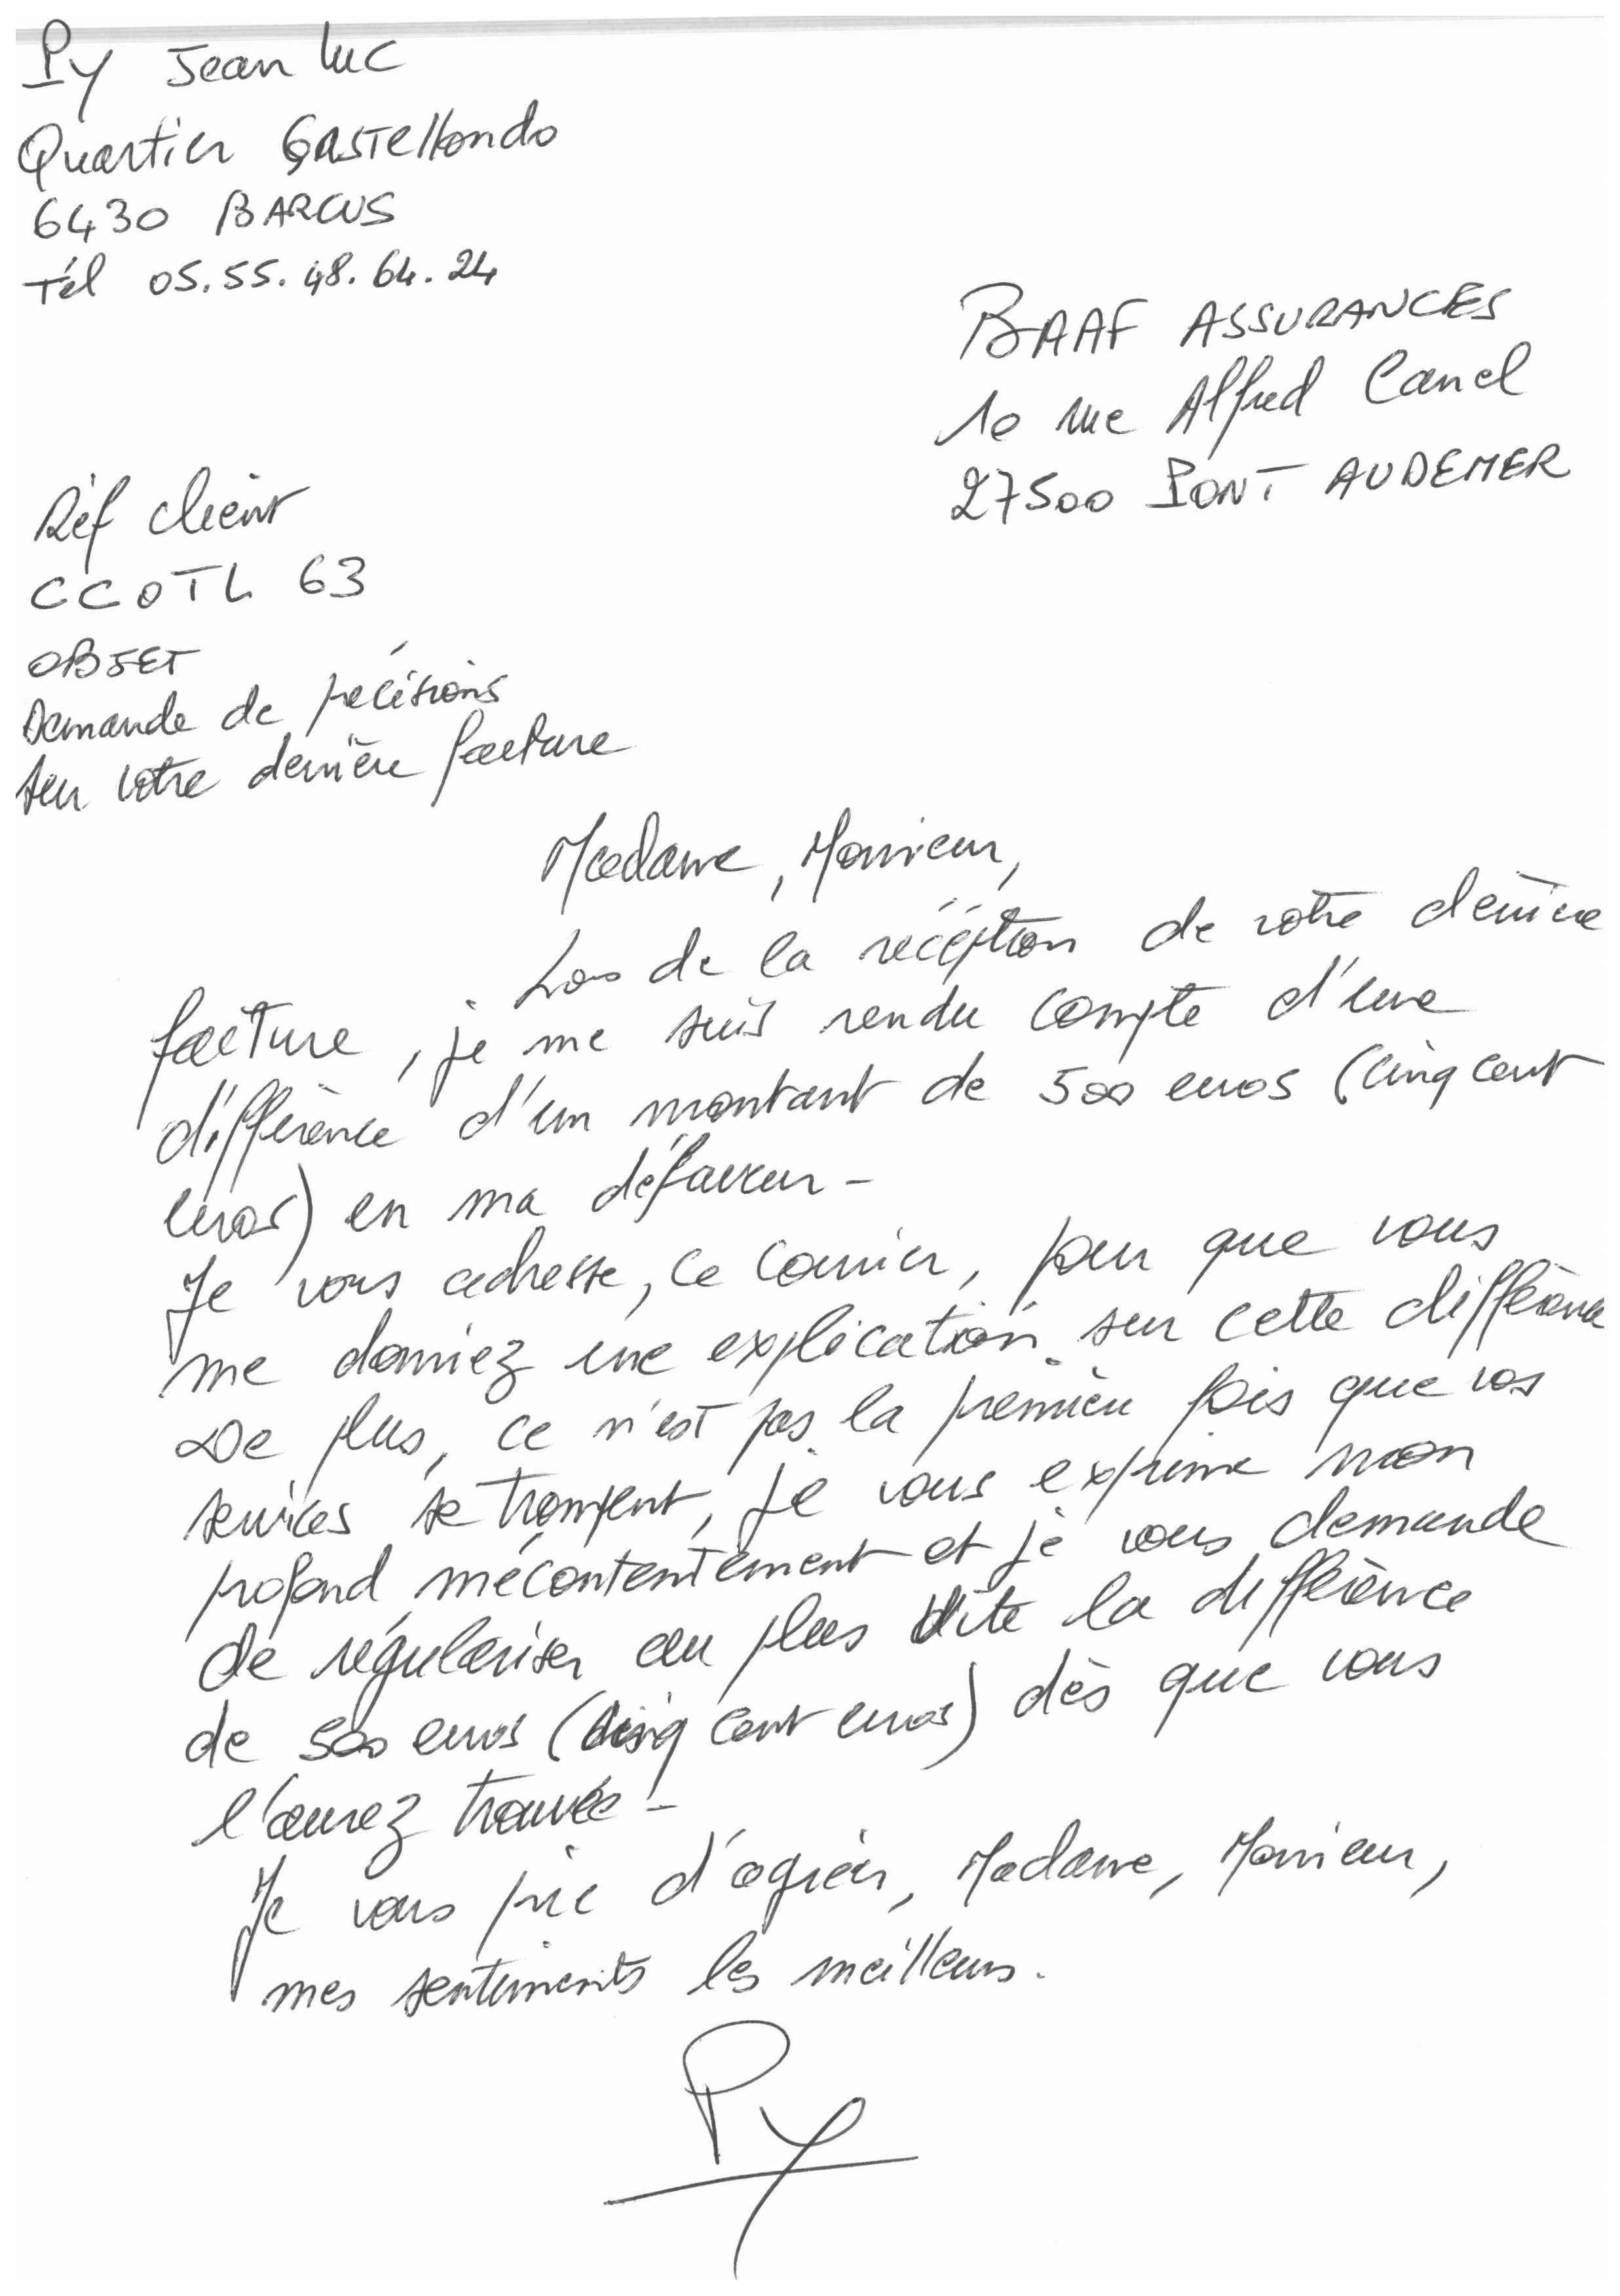 Py Jean Luc
Quartier Gastellondo
6430 BARCUS
Tél 05.55.48.64.24
BAAF ASSURANCES
10 rue Alfred Canel
27500 PONT AUDEMER
Réf client
CCOTL 63
OBJET
Demande de précisions
sur votre dernière facture
Madame, Monsieur,
Lors de la récéption de votre dernière
facture, je me suis rendu compte d'une
différence d'un montant de 500 euros (cinq cent
euros) en ma défaveur -
Je vous adresse, ce courrier, pour que vous
me donniez une explication sur cette différence.
De plus, ce n'est pas la première fois que vos
services se trompent, je vous exprime mon
profond mécontentement et je vous demande
de régulariser au plus vite la différence
de 500 euros (cinq cent euros) dès que vous
l'aurez trouvée -
Je vous prie d'agréer, Madame, Monsieur,
mes sentiments les meilleurs.
Py